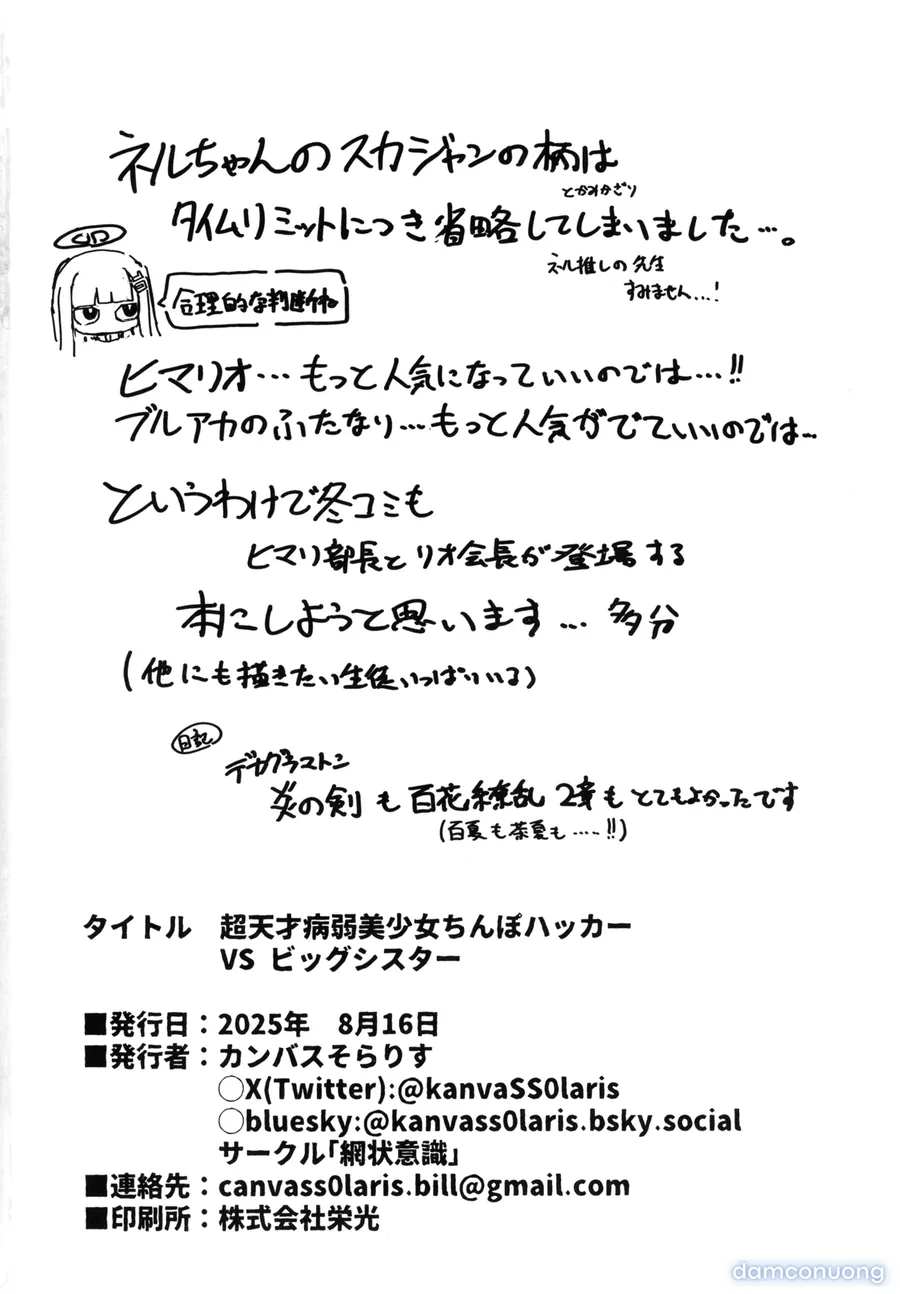 ネルちゃんのスカジャンの柄は
タイムリミットにつき省略してしまいました…。
ネル推しの先生
すみません…!
合理的な判断ね
ヒマリオ…もっと人気になっていいのでは…!!
ブルアカのふたなり…もっと人気がでていいのでは…
というわけで冬コミも
ヒマリ部長とリオ会長が登場する
本にしようと思います…多分
(他にも描きたい生徒いっぱいいる)
日記
デカグラマトン
炎の剣も百花繚乱2章もとてもよかったです
(百夏も茶夏も……!!)
タイトル 超天才病弱美少女ちんぽハッカー
VS ビッグシスター
■発行日:2025年 8月16日
■発行者:カンバスそらりす
○X(Twitter):@kanvaSS0laris
○bluesky:@kanvass0laris.bsky.social
サークル「網状意識」
■連絡先:canvass0laris.bill@gmail.com
■印刷所:株式会社栄光
damconuong